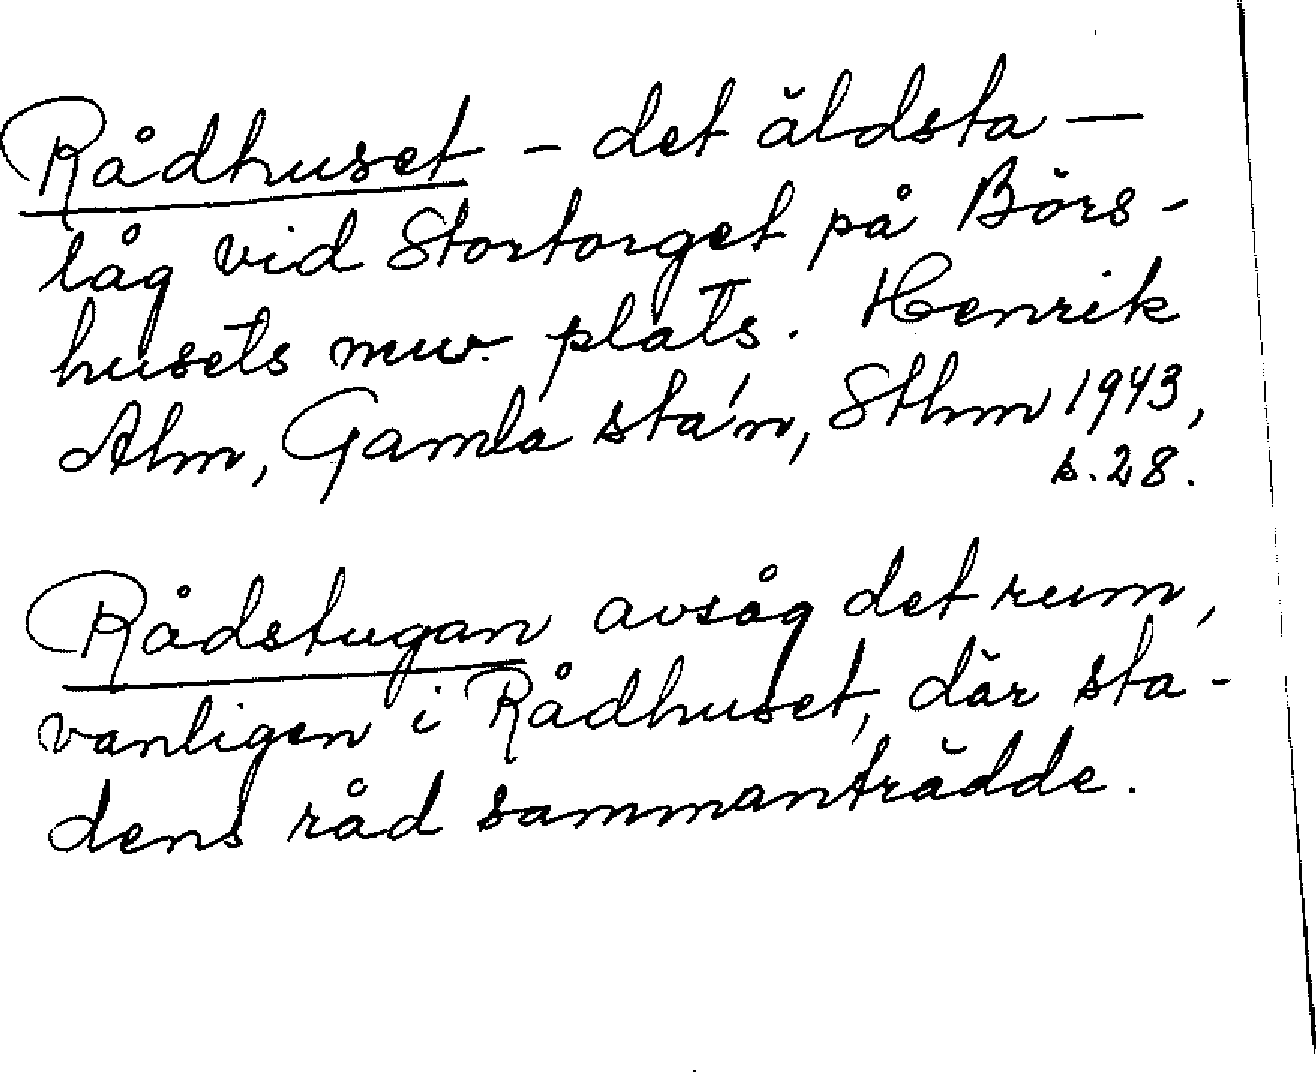 Rådhuset - det äldsta -
låg vid Stortorget på Börs-
husets nuv. plats. Henrik
Alm, Gamla sta'n, Sthm 1943,
s. 28.
Rådstugan avsåg det rum,
vanligen i Rådhuset, där sta-
dens råd sammanträdde.